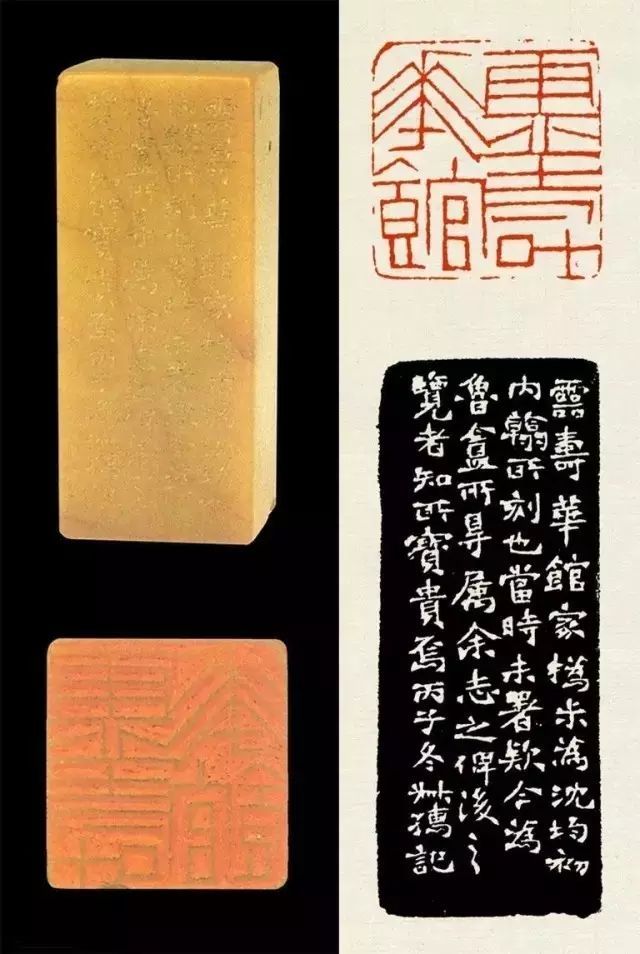 靈壽
華館
靈壽華館家撝尗為沈均初
內翰所刻也當時未署款今為
魯盦所㝵属余志之俾後之
覽者知所寶貴焉丙子冬尗孺記